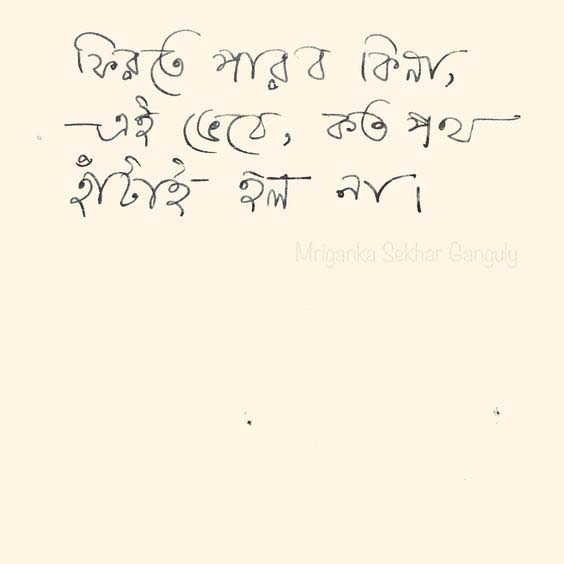 ফিরতে পারব কিনা,
এই ভেবে, কত পথ
হাঁটাই হল না।
Mriganka Sekhar Ganguly